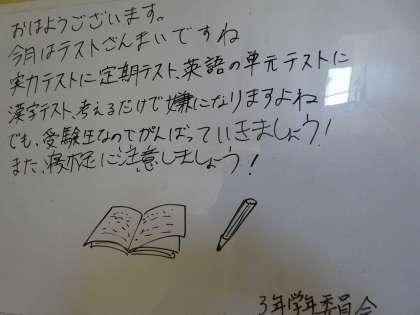 おはようございます。
今月はテストざんまいですね
実力テストに定期テスト、英語の単元テストに
漢字テスト、考えるだけで嫌になりますよね
でも、受験生なのでがんばっていきましょう!
また、寝不足に注意しましょう!
3年学年委員会